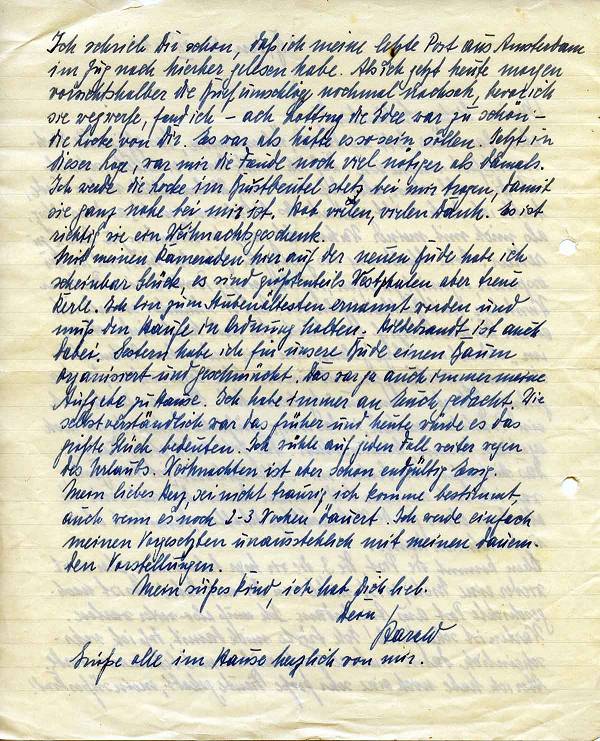 Ich schrieb Dir schon, daß ich meine letzte Post aus Amsterdam
im Zug nach hierher gelesen habe. Als ich jetzt heute morgen
vorsichtshalber die Briefumschläge nochmal nachsah, bevor ich
sie wegwerfe, fand ich – ach die Idee war zu schön –
die Locke von Dir. Es war als hätte es so sein sollen. Jetzt in
dieser Lage, war mir die Freude noch viel nötiger als damals.
Ich werde die Locke im Brustbeutel stets bei mir tragen, damit
sie ganz nahe bei mir ist. Hab vielen, vielen Dank. Es ist
richtig wie ein Weihnachtsgeschenk.
Mit meinen Kameraden hier auf der neuen Bude habe ich
scheinbar Glück, es sind größtenteils Westphalen aber treue
Kerle. Ich bin zum Stubenältesten ernannt worden und
muß den Haufen in Ordnung halten. Hildebrandt ist auch
dabei. Gestern habe ich für unsere Bude einen Baum
organisiert und geschmückt, das war ja auch immer meine
Aufgabe zu Hause. Ich habe immer an Euch gedacht. Wie
selbstverständlich war das früher und heute würde es das
größte Glück bedeuten. Ich wühle auf jeden Fall weiter wegen
des Urlaubs. Weihnachten ist aber schon endgültig Essig.
Mein liebes Herz, sei nicht traurig, ich komme bestimmt
auch wenn es noch 2-3 Wochen dauert. Ich werde einfach
meinen Vorgesetzten unausstehlich mit meinen dauern-
den Vorstellungen.
Mein süßes Kind, ich hab Dich lieb.
Dein
Harald
Grüße alle im Hause herzlich von mir.